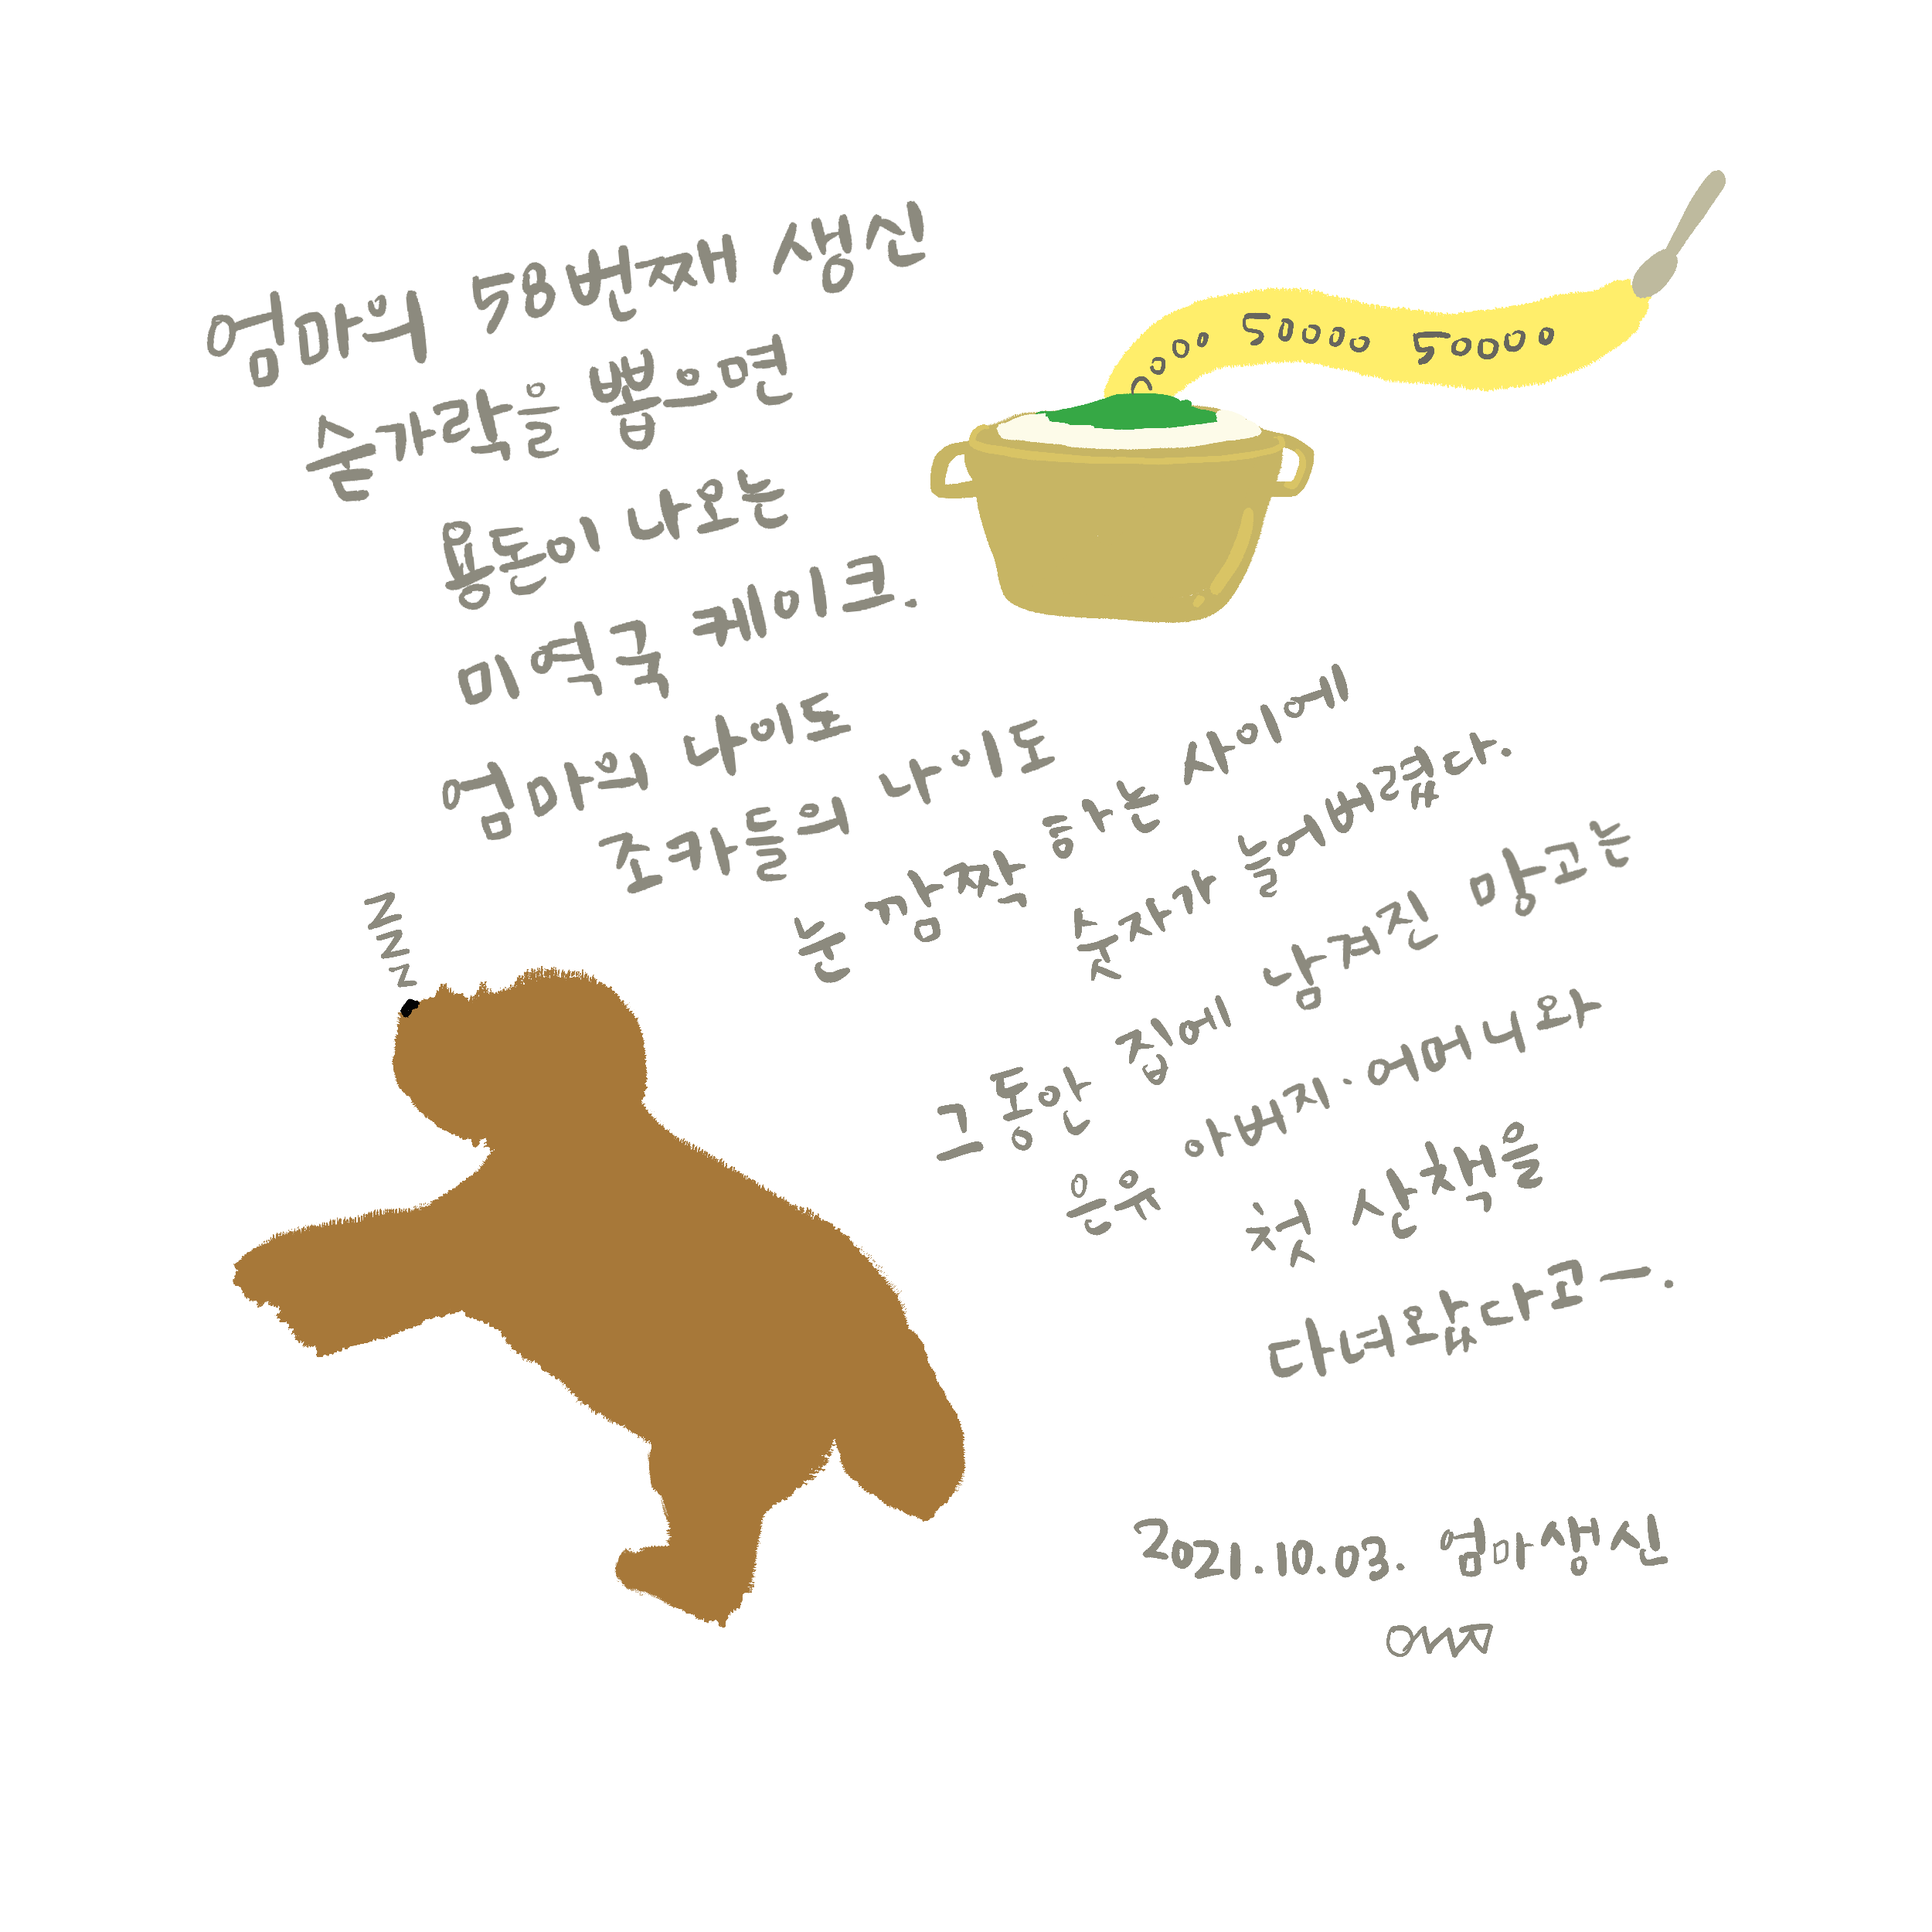 엄마의 58번째 생신
숟가락을 뽑으면
용돈이 나오는
미역국 케이크.
엄마의 나이도
조카들의 나이도
눈 깜짝 하는 사이에
숫자가 늘어버렸다.
그동안 집에 남겨진 망고는
은유 아버지·어머니와
첫 산책을
다녀왔다고ㅡ.
0000 50000 50000
zzzzz
2021.10.03. 엄마생신